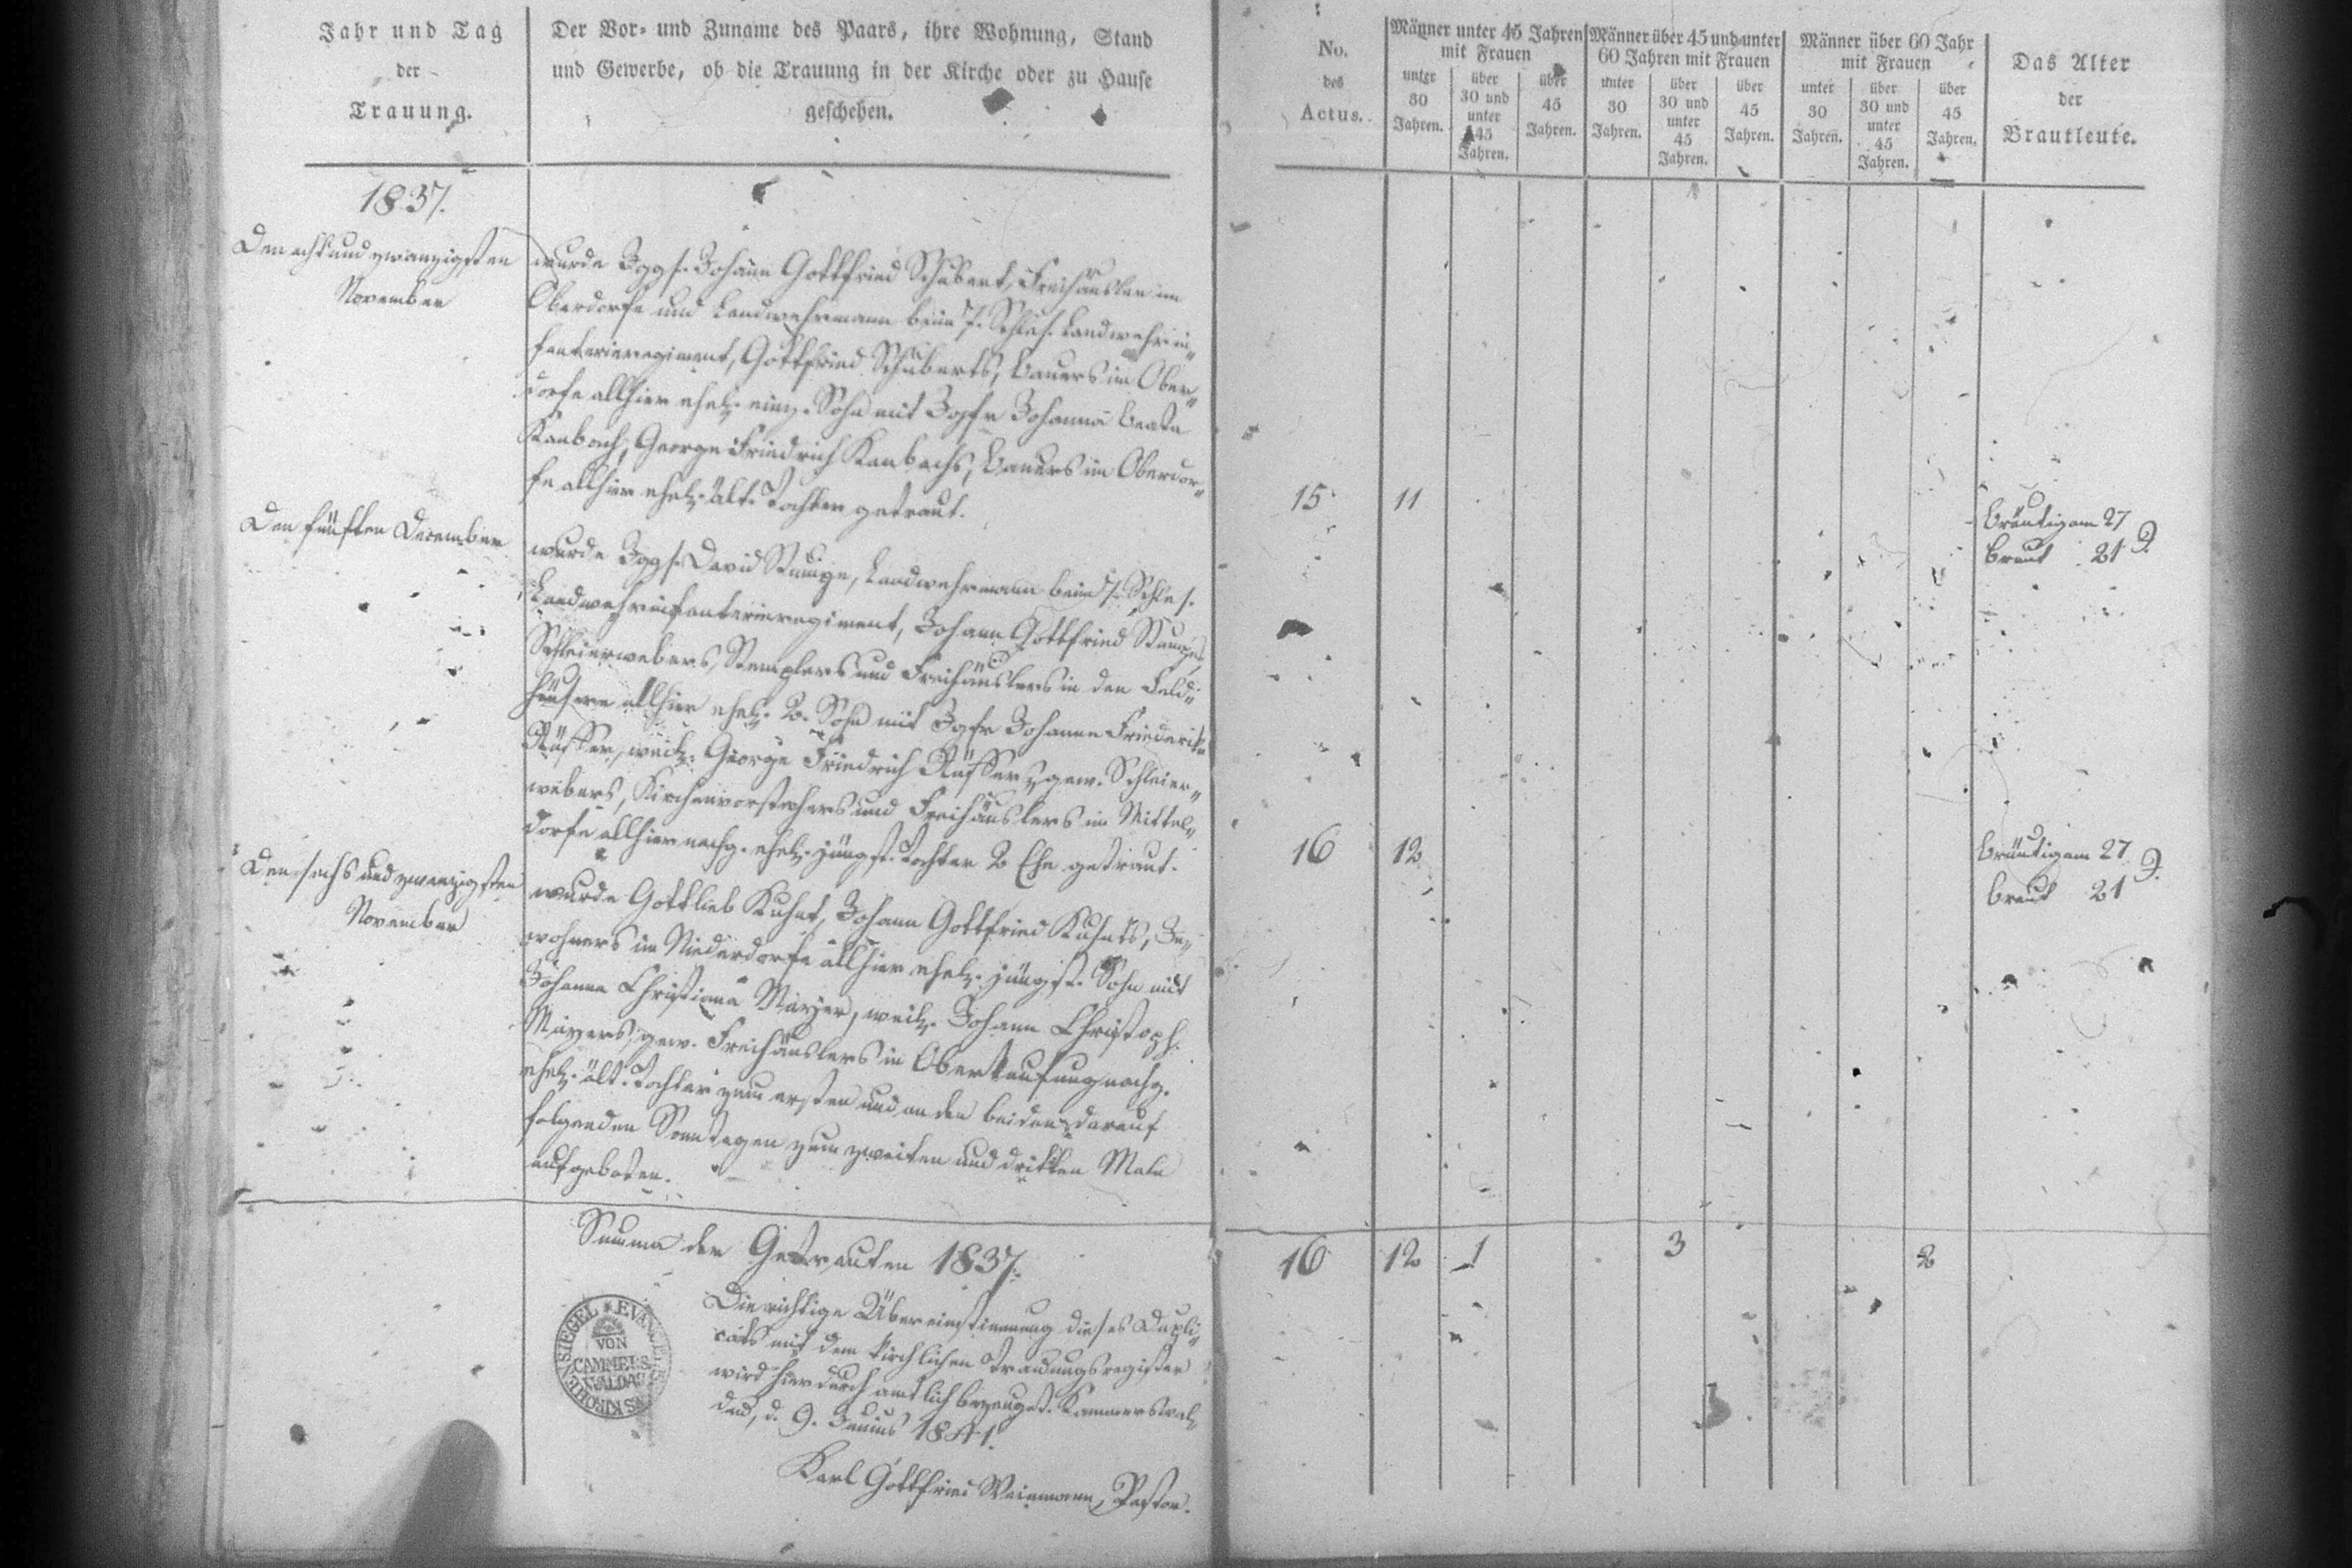 Jahr und Tag
der
Trauung.
Der Vor- und Zuname des Paars, ihre Wohnung, Stand
und Gewerbe, ob die Trauung in der Kirche oder zu Hause
geschehen.
No.
des
Actus.
Männer unter 45 Jahren
mit Frauen
unter
30
Jahren.
über
30 und
unter
45
Jahren.
über
45
Jahren.
Männer über 45 und unter
60 Jahren mit Frauen
unter
30
Jahren.
über
30 und
unter
45
Jahren.
über
45
Jahren.
Männer über 60 Jahr
mit Frauen
unter
30
Jahren.
über
30 und
unter
45
Jahren.
über
45
Jahren.
Das Alter
der
Brautleute.
1837.
Den acht und zwanzigsten
November
wurde Jggs. Johann Gottfried Schubert, Freihäusler im
Oberdorfe und Landwehrmann beim 7. Schles. Landwehrin„
fanterieregiment, Gottfried Schuberts, Bauers im Ober„
dorfe allhier ehel. einz. Sohn mit Jgfr Johanna Beate
Kambach, George Friedrich Kambachs, Bauers im Oberdor„
fe allhier ehel. ält. Tochter getraut.
15 11
Bräutigam 27 J.
Braut 21
Den fünften December
wurde Jggs. David Stumpe, Landwehrmann beim 7. Schles.
Landwehrinfanterieregiment, Johann Gottfried Stumpes
Schleierwebers, Stemplers und Freihäuslers in den Feld„
häusern allhier ehel. 2. Sohn mit Jgfr Johanne Friederike
weil. George Friedrich gew. Schleier„
webers, Kirchenvorstehers und Freihäuslers im Mittel„
dorfe allhier nachg. ehel. jüngst. Tochter 2 Ehe getraut.
16 12
Bräutigam 27 J.
Braut 21
Den sechs und zwanzigsten
November
wurde Gottlieb Kuhnt, Johann Gottfried Kuhnts, In„
wohners im Niederdorfe allhier ehel. jüngst. Sohn mit
Johanne Christiane Mayer, weil. Johann Christoph
Mayers, gew. Freihäuslers in Oberkaufung nachg.
ehel. ält. Tochter zum ersten und an den beiden darauf
folgenden Sonntagen zum zweiten und dritten Male
aufgeboten.
Summa der Getrauten 1837.
16 12 1 3 2
Die richtige Übereinstimmung dieses Dupli„
cats mit dem kirchlichen Trauungsregister
wird hierdurch amtlich bezeugt. Kammerswal„
dau, d. 9. Junius 1841.
Karl Gottfried Weinmann, Pastor.
KIRCHENSIEGEL EVANGELIS
VON
CAMMERS
WALDAU